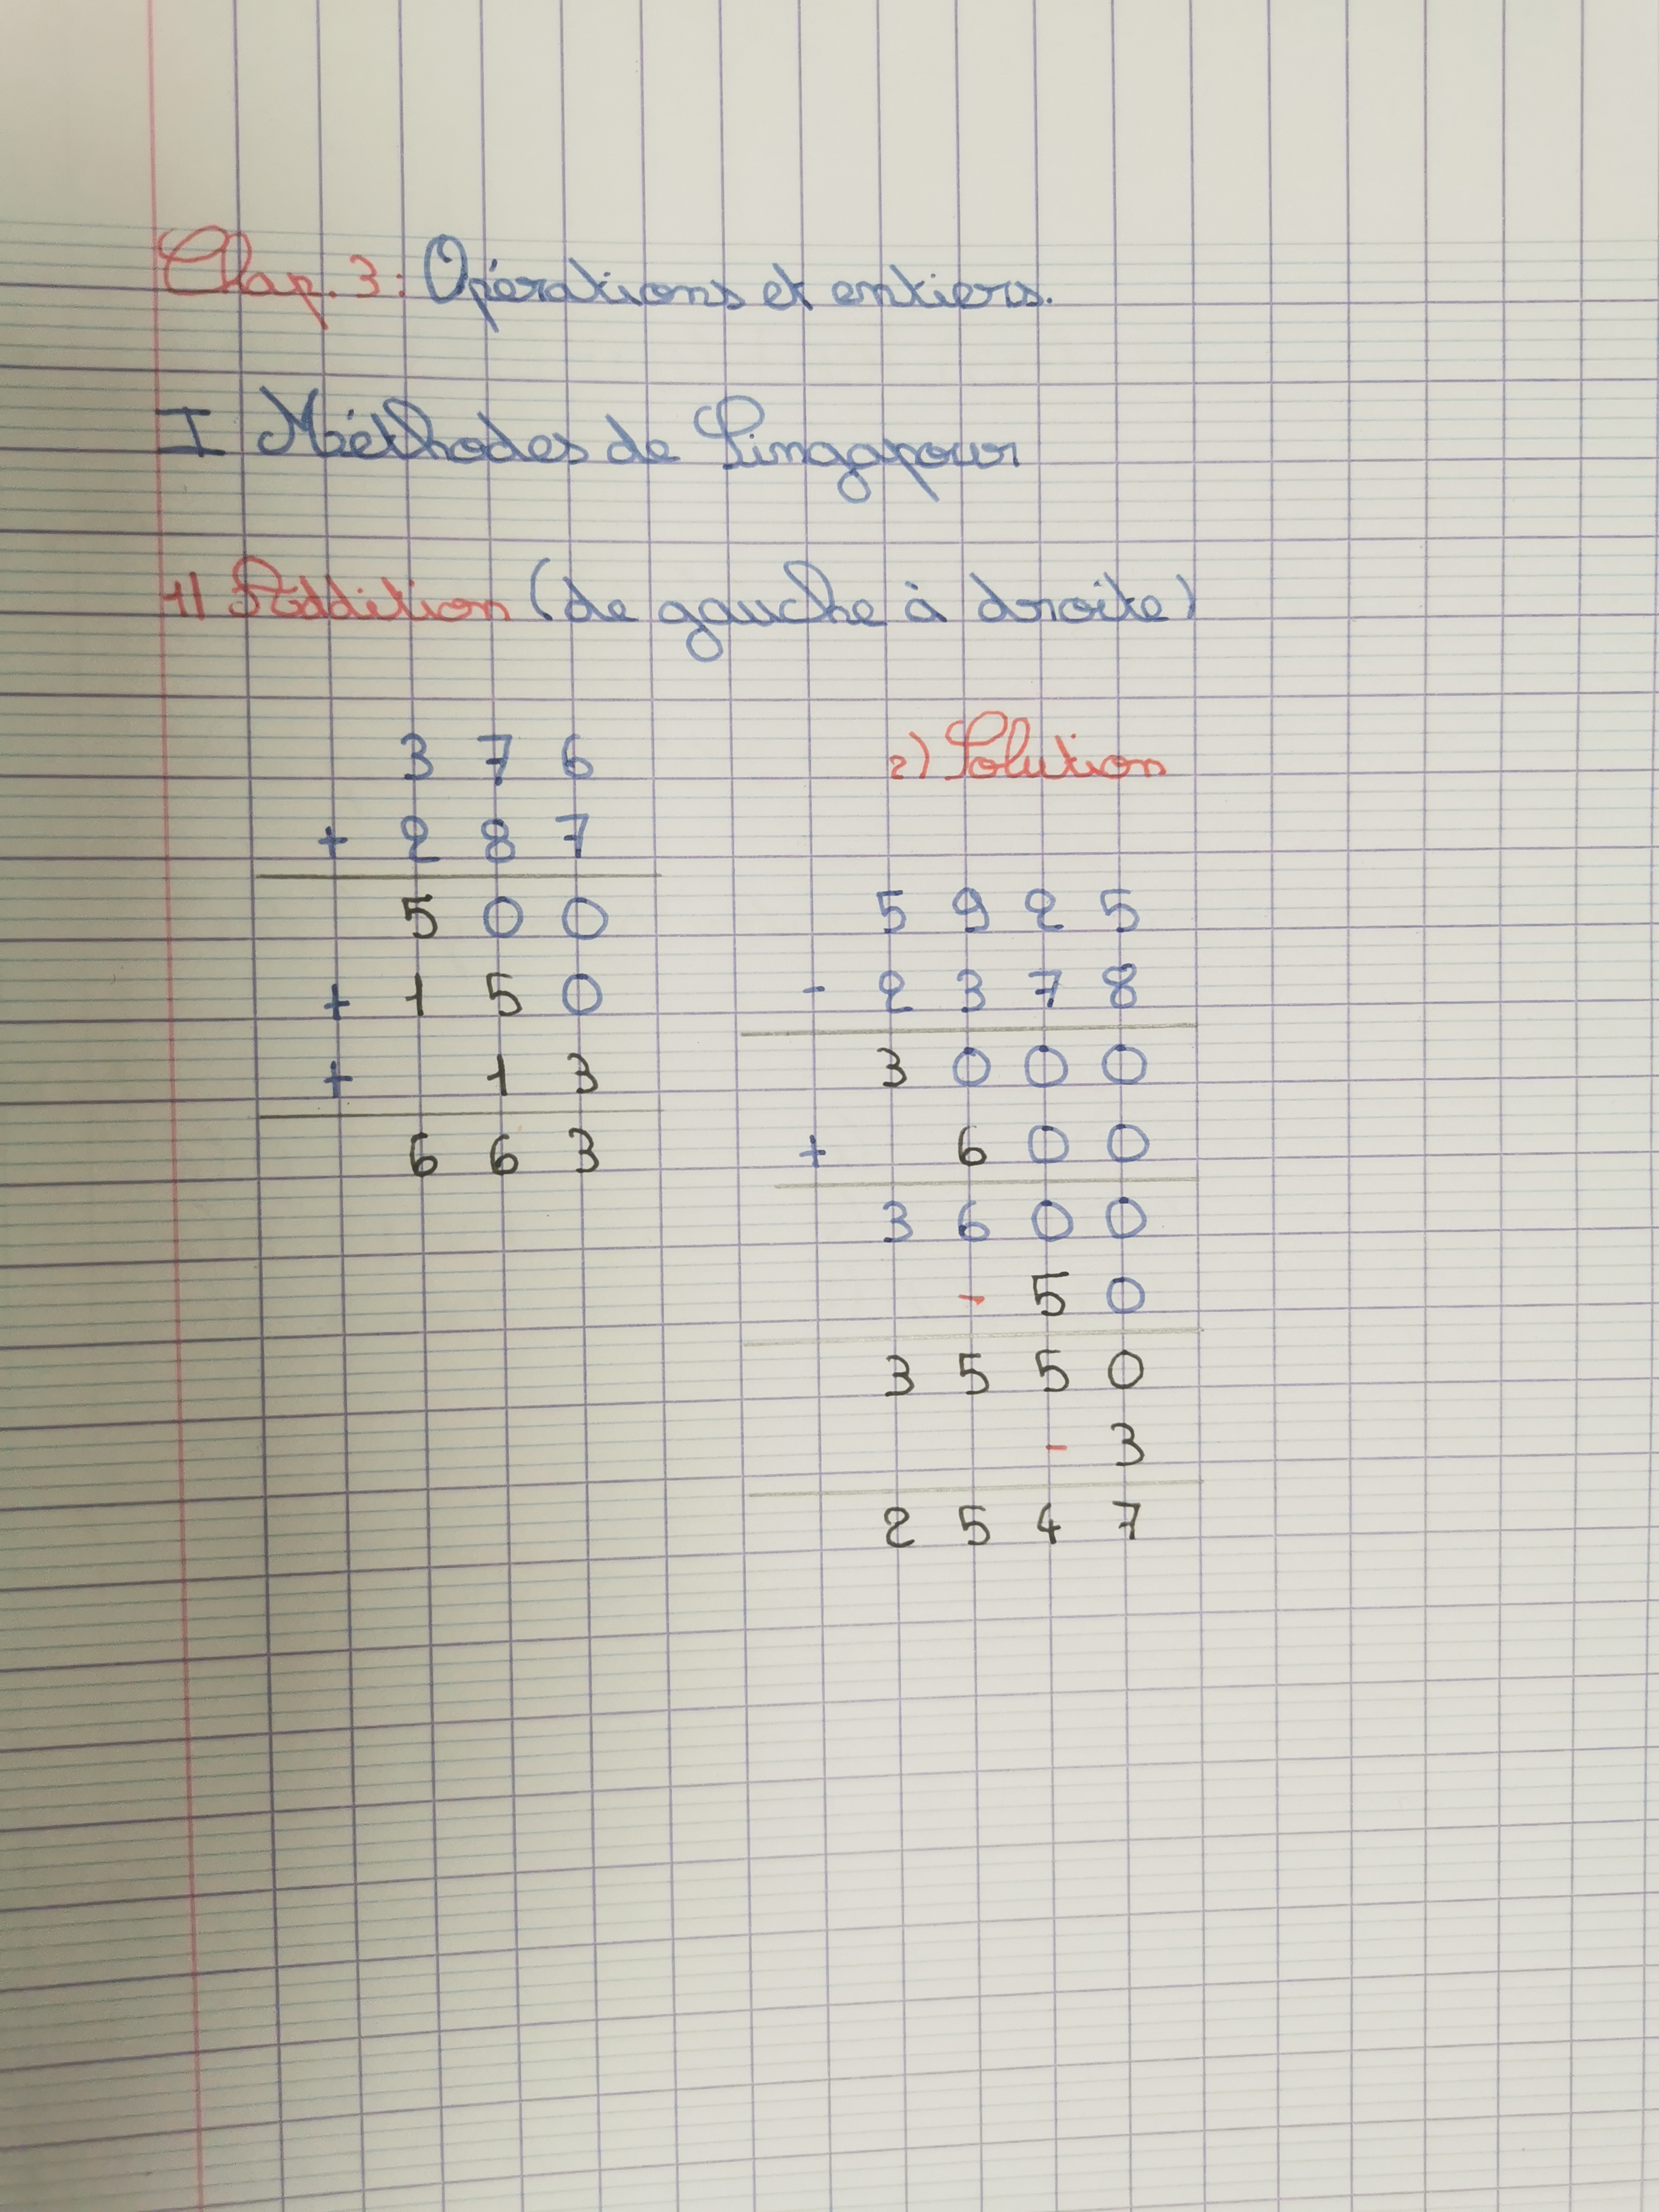 Chap. 3: Opérations et entiers.
I Méthodes de Singapour
1) Addition (de gauche à droite)
3 7 6
+ 2 8 7
5 0 0
+ 1 5 0
+ 1 3
6 6 3
2) Solution
5 9 2 5
- 2 3 7 8
3 0 0 0
+ 6 0 0
3 6 0 0
- 5 0
3 5 5 0
- 3
2 5 4 7